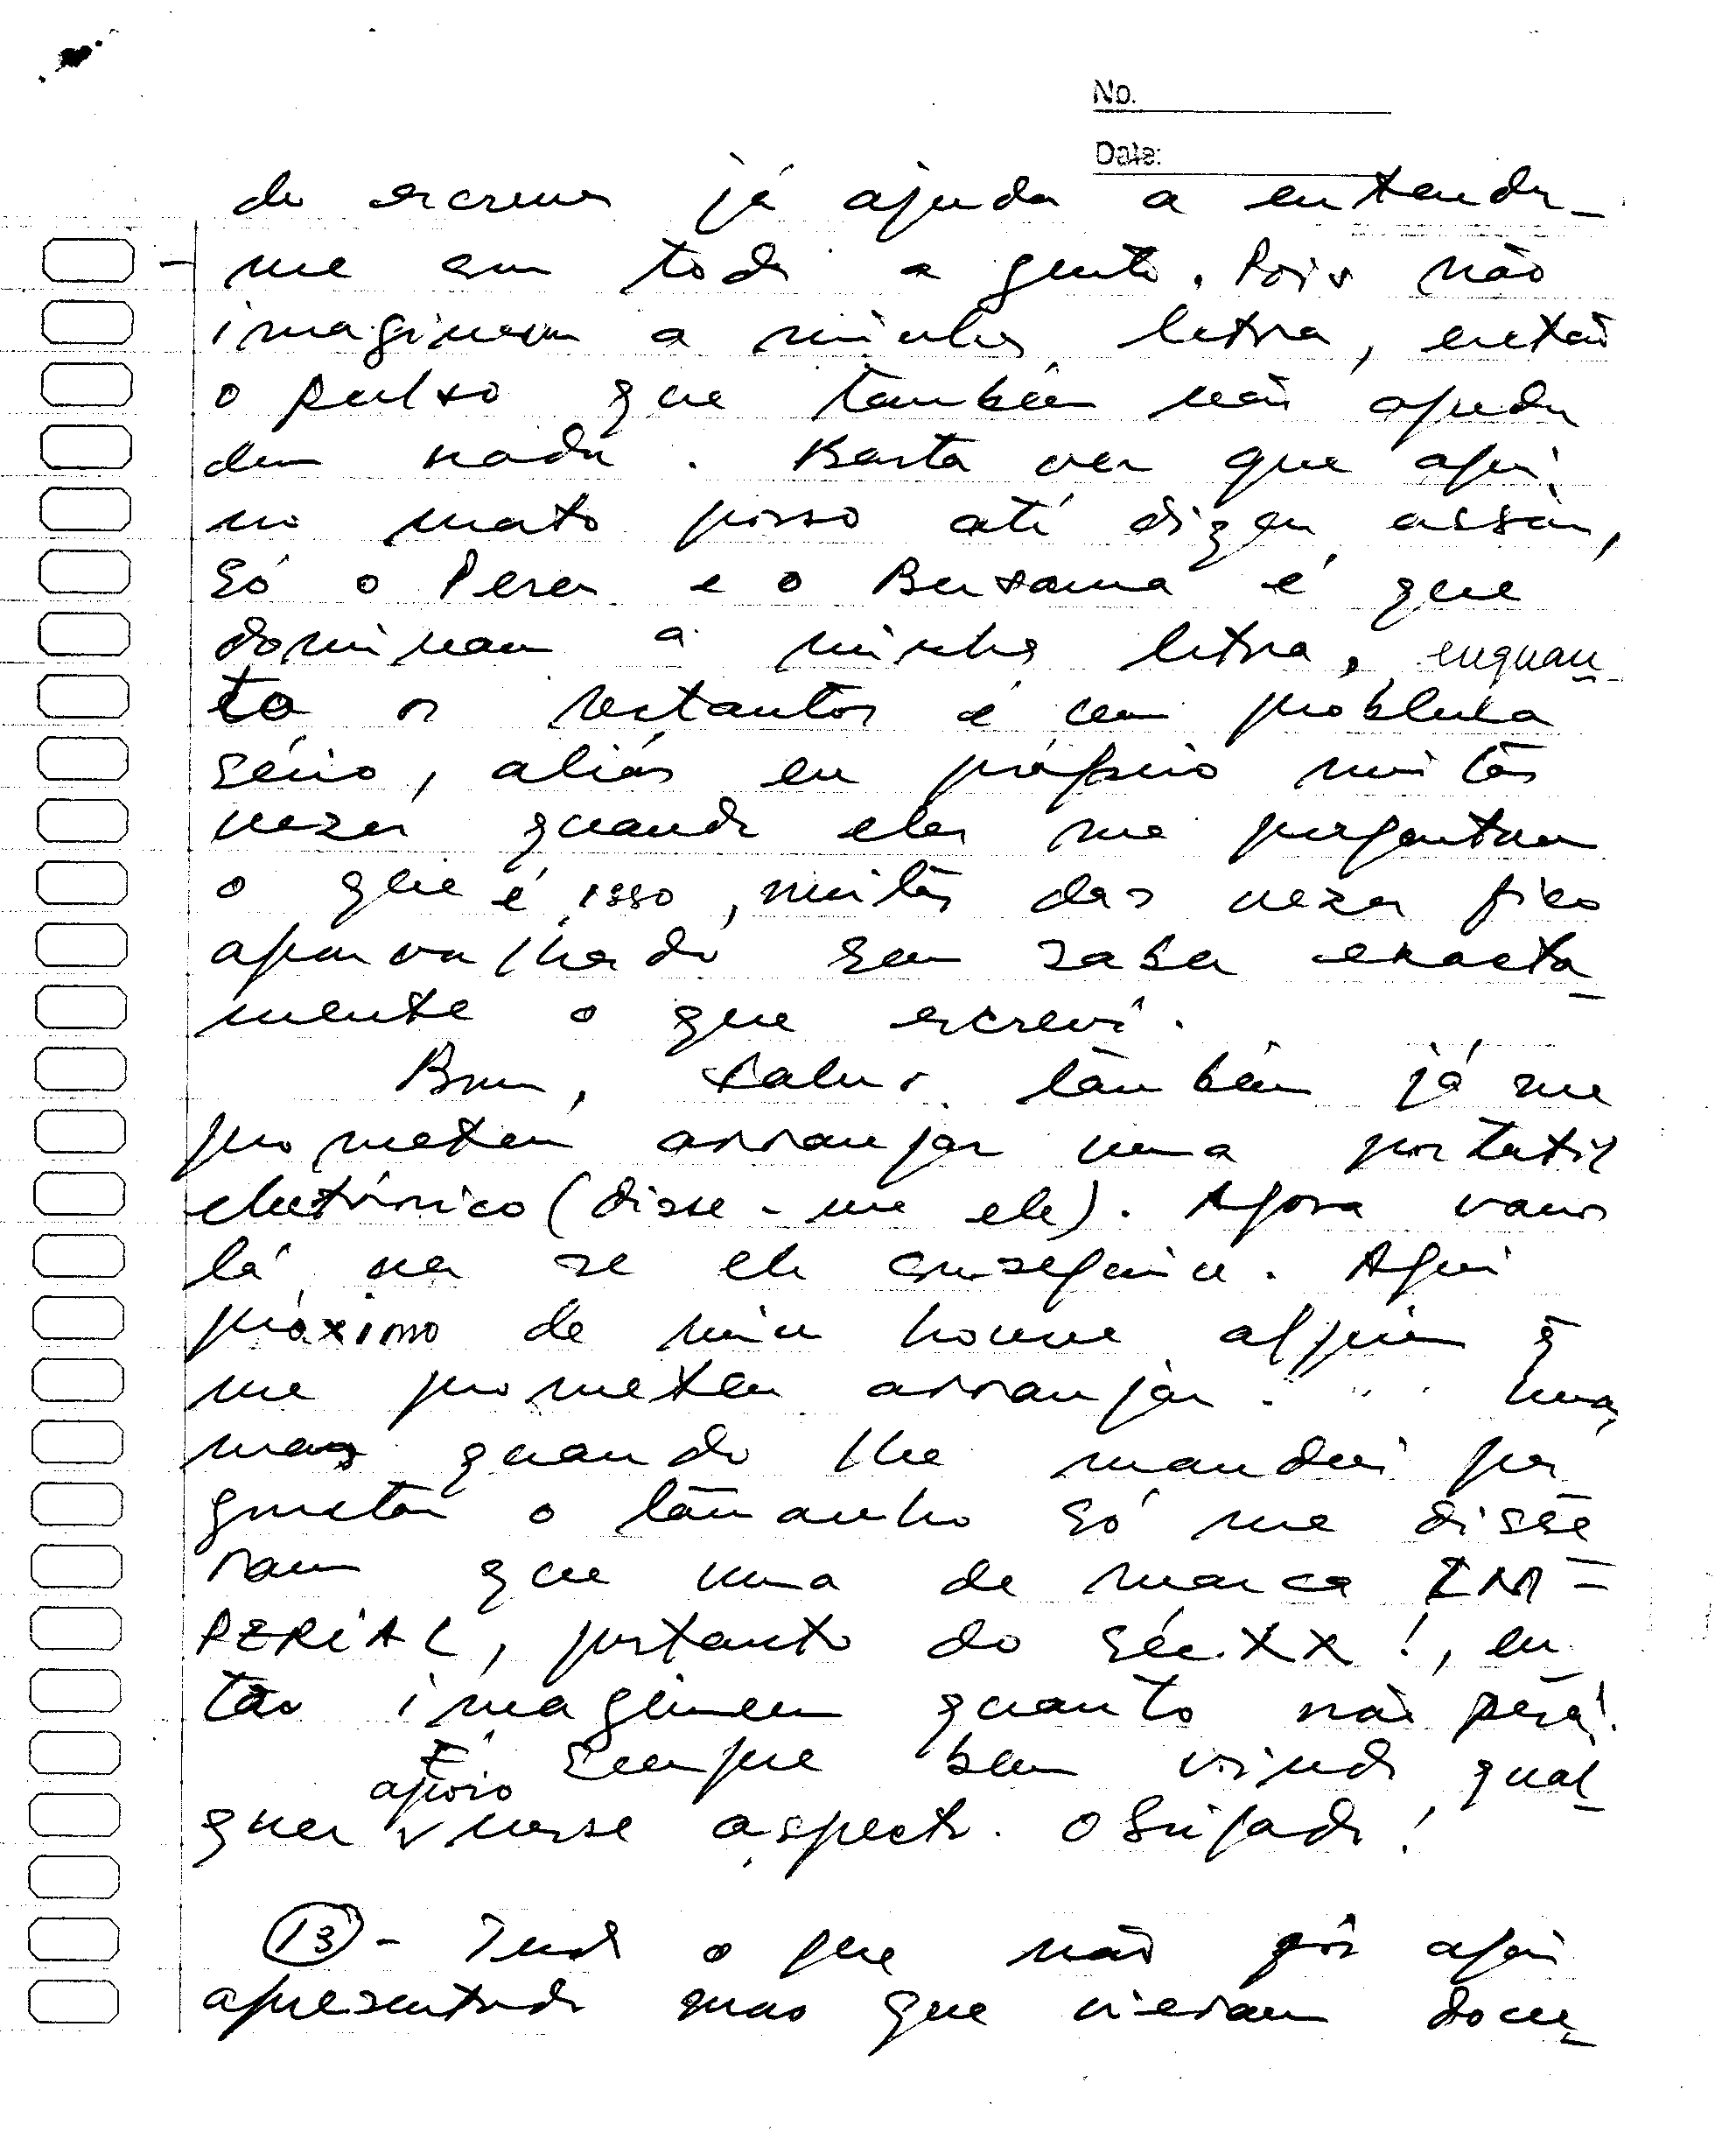 No.
Date:
de escrever já ajuda a entender-
me com toda a gente. Pois não
imaginam a minha letra, então
o pulso que também não ajuda
em nada. Basta ver que aqui
no mato posso até dizer assim,
só o Peser e o Busama é que
dominam a minha letra, enquan-
to os restantes é um problema
sério, aliás eu próprio muitas
vezes quando eles me perguntam
o que é isso, muitas das vezes fico
aparvalhado sem saber exacta-
mente o que escrevi.
Bom, também já me
prometeu arranjar uma portatil
electrónico (disse-me ele). Agora vamos
lá ver se ele consegui-u. Aqui
próximo de mim houve alguém q̃
me prometeu arranjar. uma,
mas quando lhe mandei per
guntar o tamanho só me disse
ram que uma de marca IM-
PERIAL, portanto do séc. XX!, en
tão imaginem quanto não pesa!
É sempre bem vindo qual-
quer apoio nesse aspecto. Obrigado!
(13) - Tudo o que não foi aqui
apresentado mas que vieram docu-